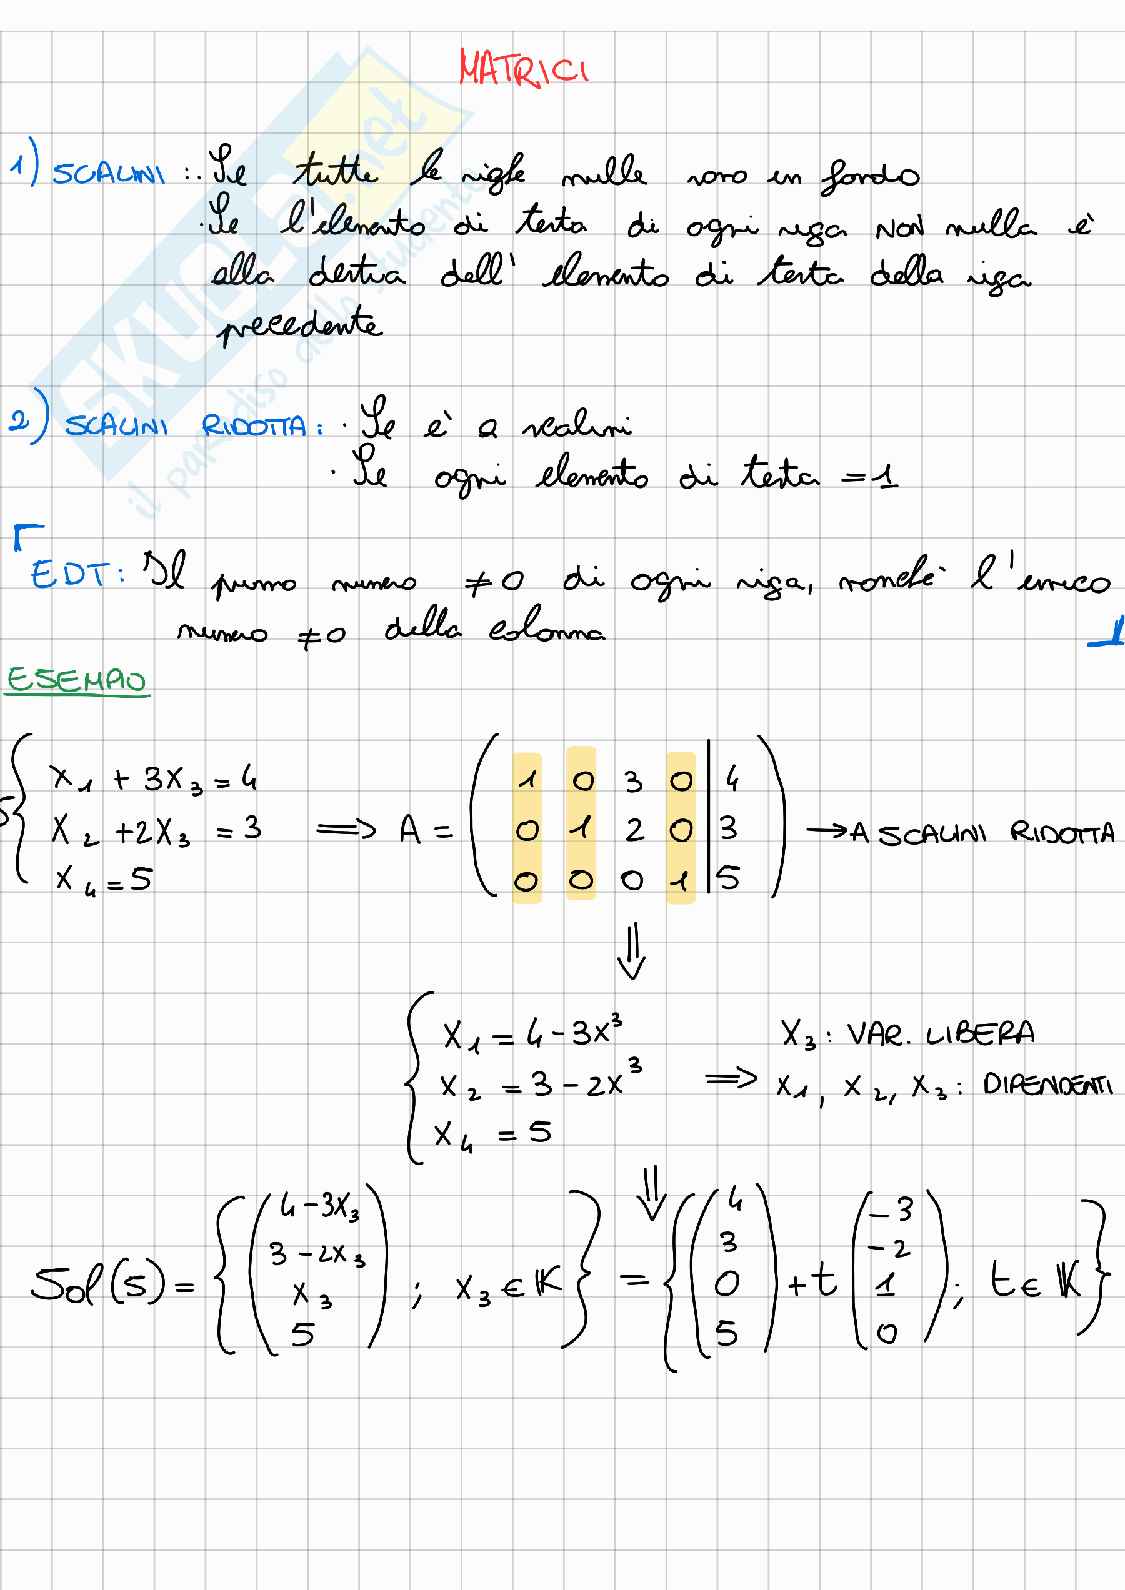 MATRICI
1) SCALINI : · Se tutte le righe nulle sono in fondo
· Se l'elemento di testa di ogni riga NON nulla è
alla destra dell' elemento di testa della riga
precedente
2) SCALINI RIDOTTA : · Se è a scalini
· Se ogni elemento di testa = 1
EDT : Il primo numero ≠0 di ogni riga, nonché l'unico
numero ≠0 della colonna
ESEMPIO
S { x₁ + 3x₃ = 4
x₂ + 2x₃ = 3
x₄ = 5
⟹ A =
( 1 0 3 0 | 4
0 1 2 0 | 3
0 0 0 1 | 5 )
→ A SCALINI RIDOTTA
⇓
{ x₁ = 4 - 3x³
x₂ = 3 - 2x³
x₄ = 5
⟹
x₃ : VAR. LIBERA
x₁, x₂, x₃ : DIPENDENTI
⇓
Sol(S) = { ( 4 - 3x₃
3 - 2x₃
x₃
5 ) ; x₃ ∈ 𝕂 }
= { ( 4
3
0
5 ) + t ( -3
-2
1
0 ) ; t ∈ 𝕂 }
SKUOLA.net
il paradiso dello studente